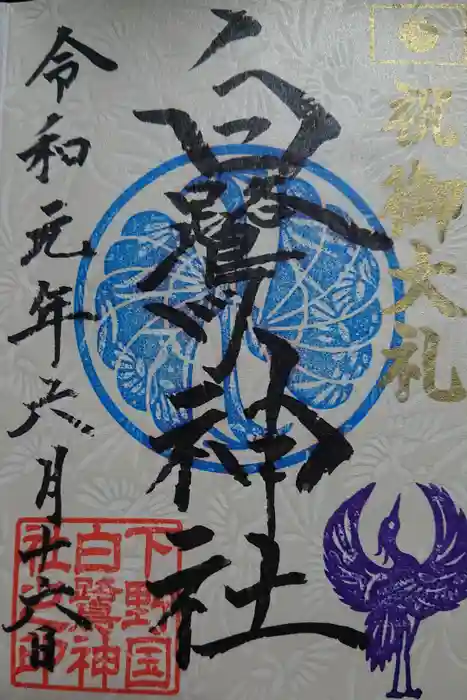 祝御大礼
白鷺神社
令和元年六月十六日
下野国
白鷺神
社之印